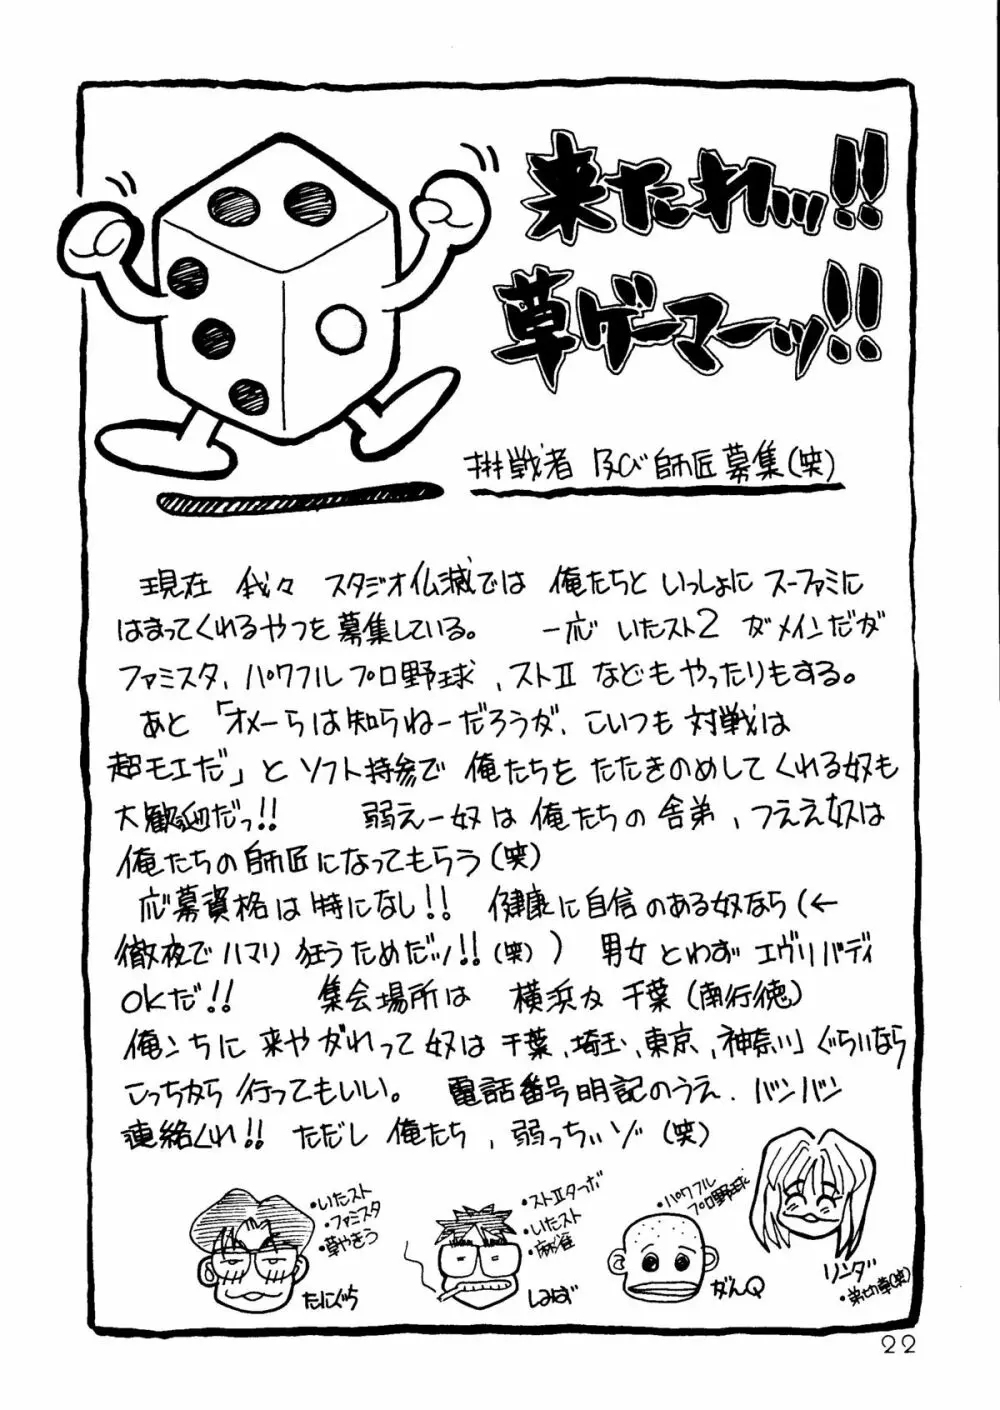 来たれッ!!
草ゲーマーッ!!
挑戦者 及び師匠募集(笑)
現在 我々 スタジオ仏滅では 俺たちと いっしょに スーファミに
はまってくれるやつを募集している。 一応 いたスト2 がメインだが
ファミスタ、パワフルプロ野球、ストII などもやったりもする。
あと「オメーらは知らねーだろうが、こいつも 対戦は
超モエだ」と ソフト持参で 俺たちを たたきのめしてくれる奴も
大歓迎だっ!! 弱えー奴は俺たちの 舎弟、つええ奴は
俺たちの師匠になってもらう(笑)
応募資格は特になし!! 健康に自信のある奴なら(←
徹夜でハマり狂うためだッ!!(笑)) 男女とわず エヴリバディ
OKだ!! 集会場所は 横浜及 千葉(南行徳)
俺ンちに 来やがれって奴は 千葉、埼玉、東京、神奈川ぐらいなら
こっちから行ってもいい。 電話番号明記のうえ、バンバン
連絡くれ!! ただし 俺たち、弱っちぃゾ(笑)
・いたスト
・ファミスタ
・草やきう
たにぐち
・ストIIターボ
・いたスト
・麻雀
しみず
・パワフル
プロ野球
がんQ
リンダ
・弟切草(笑)
22